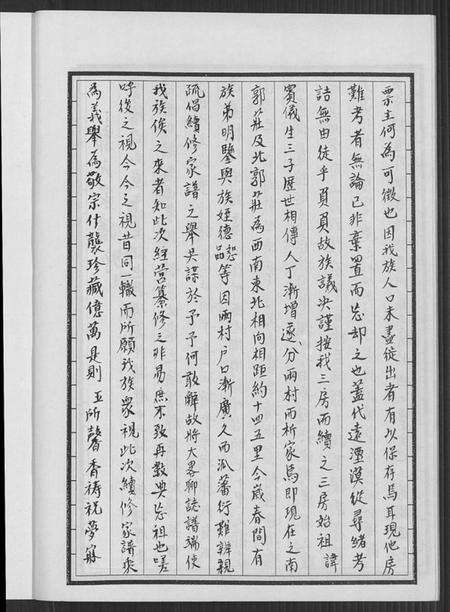 票主何為可徵也因我族人口未盡從出者有以保存焉耳現他房
難考者無論已非棄置而忘却之也蓋代遠湮漠從尋緒考
詰無由徒乎負負故族議决謹按我三房而續之三房始祖諱
賓儀生三子歷世相傳人丁漸增遂分兩村而析家焉即現在之南
郭莊及北郭莊為西南東北相向相距約十四五里今歲春間有
族弟明鑒與族姪德恕品等因兩村户口漸廣久而瓜蕃衍難辨親
疏倡續修家譜之舉吴謀於予予何敢辭故將大畧聊誌譜端使
我族後之來者知此次經营纂修之非易庶不致再数典忘祖也嗟
呼後之視今今之視昔同一轍而所願我族衆視此次續修家譜來
為義舉為敬宗什襲珍藏億萬是則玉所馨香祷祝夢寐